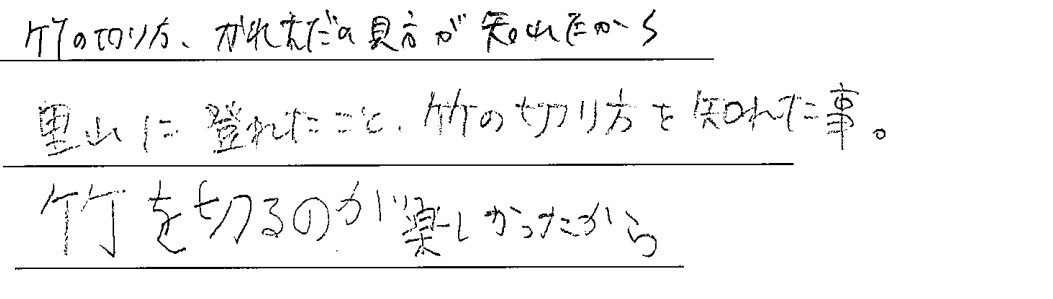 竹の切り方、かれえだの見方が知れたから
里山に登れたこと、竹の切り方を知れた事。
竹を切るのが楽しかったから